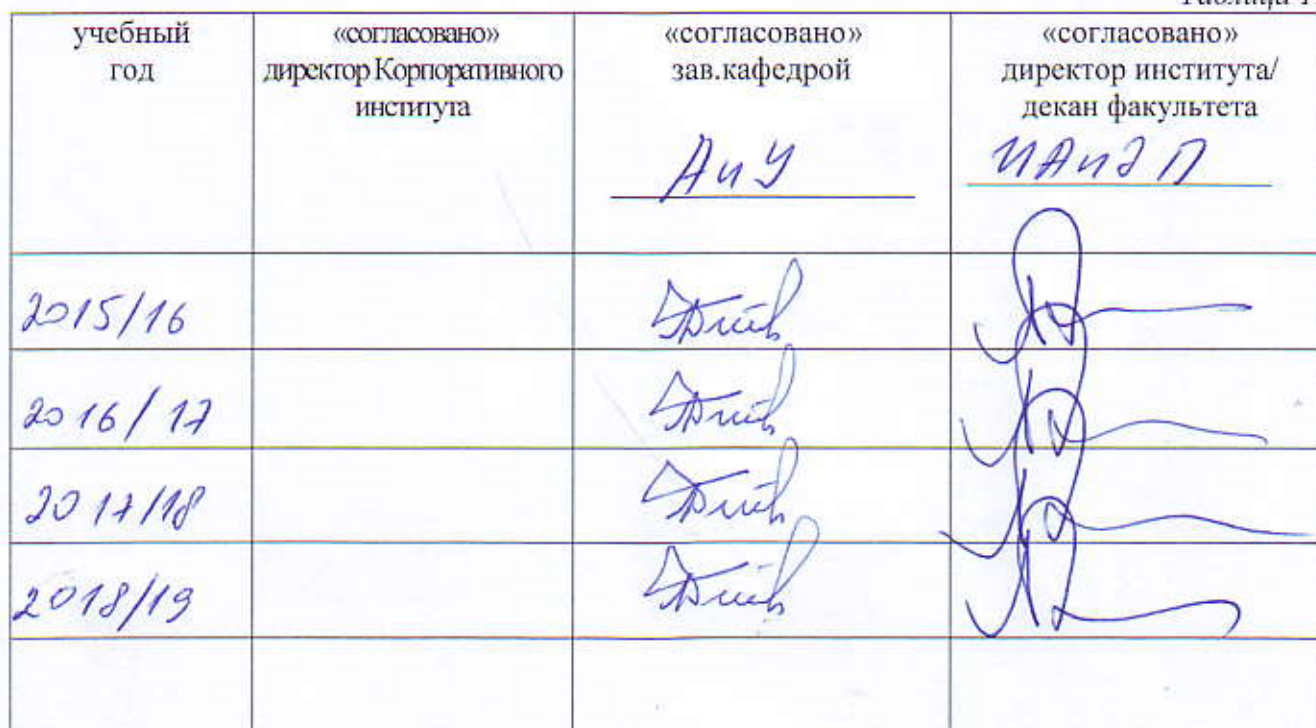 Таблица 1
учебный год
«согласовано» директор Корпоративного института
«согласовано» зав.кафедрой
АиУ
«согласовано» директор института/ декан факультета
ИАиЭП
2015/16
2016/17
2017/18
2018/19